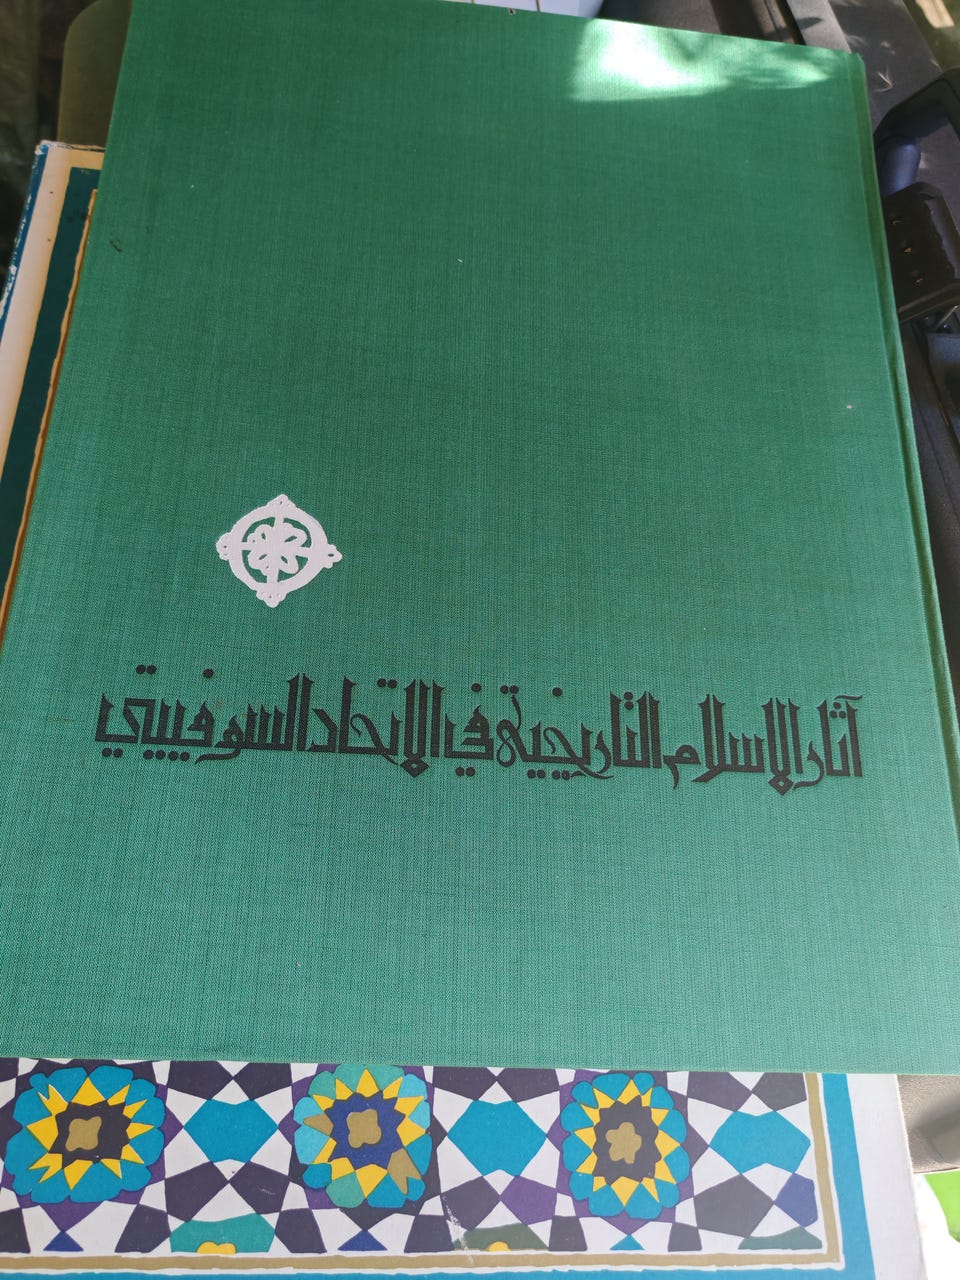 آثار الإسلام التاريخية في الاتحاد السوفييتي